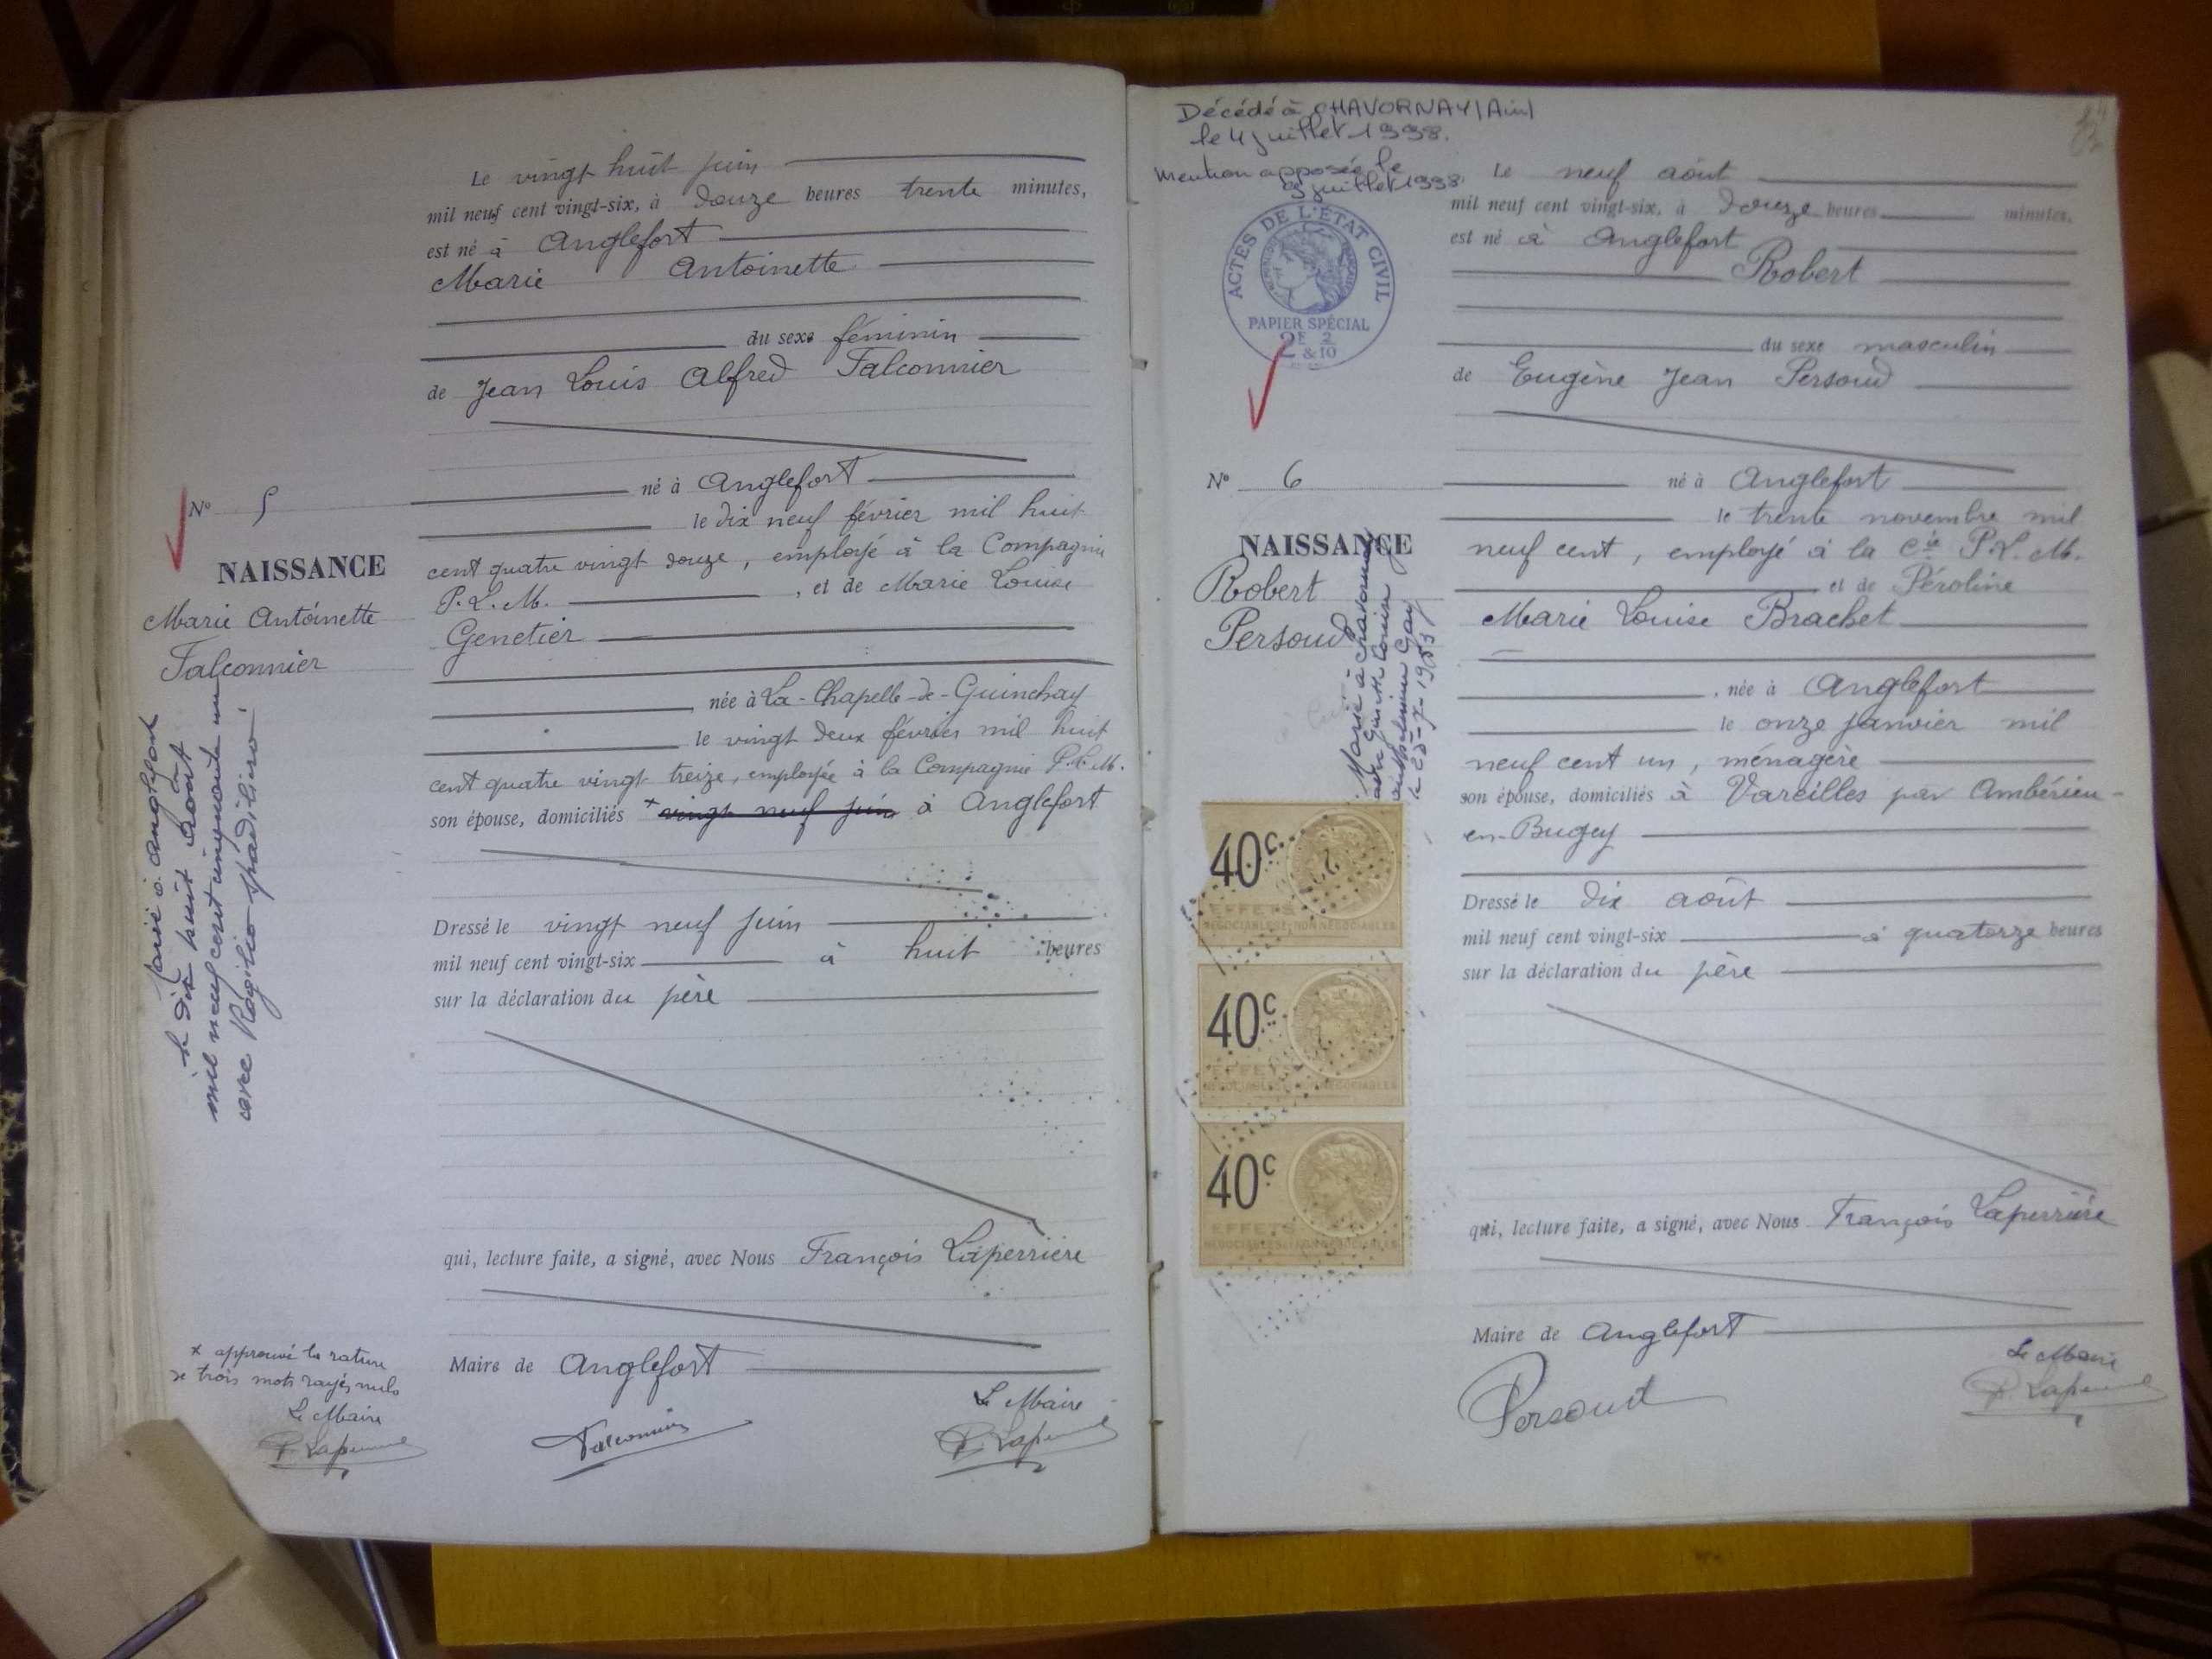 Le vingt huit juin
mil neuf cent vingt-six, à douze heures trente minutes,
est né à Anglefort
Marie Antoinette
du sexe féminin
de Jean Louis Alfred Falconnier
né à Anglefort
le dix neuf février mil huit
cent quatre vingt douze, employé à la Compagnie
P.L.M. , et de Marie Louise
Genetier
née à La-Chapelle-de-Guinchay
le vingt deux février mil huit
cent quatre vingt treize, employée à la Compagnie P.L.M.
son épouse, domiciliés * vingt neuf juin à Anglefort
Dressé le vingt neuf juin
mil neuf cent vingt-six à huit heures
sur la déclaration du père
qui, lecture faite, a signé, avec Nous François Laperrière
Maire de Anglefort
Le Maire
Falconnier
N° 5
NAISSANCE
Marie Antoinette
Falconnier
à Anglefort
le dix huit août
mil neuf cent cinquante
avec
* approuvé la rature
de trois mots rayés nuls
Le Maire
Décédé à CHAVORNAY (Ain)
le 4 juillet 1998.
Mention apposée le
9 juillet 1998.
ACTES DE L'ÉTAT CIVIL
PAPIER SPÉCIAL
2E 2
&10
N° 6
NAISSANCE
Robert
Persoud
Marié à Chavornay
avec
Gay
le 25-7-1953
40c
EFFETS
NÉGOCIABLES & NON NÉGOCIABLES
40c
EFFETS
NÉGOCIABLES & NON NÉGOCIABLES
40c
EFFETS
NÉGOCIABLES & NON NÉGOCIABLES
Le neuf août
mil neuf cent vingt-six, à douze heures minutes,
est né à Anglefort
Robert
du sexe masculin
de Eugène Jean Persoud
né à Anglefort
le trente novembre mil
neuf cent, employé à la Cie P.L.M.
et de Péroline
Marie Louise Brachet
, née à Anglefort
le onze janvier mil
neuf cent un, ménagère
son épouse, domiciliés à Vareilles par Ambérieu-
en-Bugey
Dressé le dix août
mil neuf cent vingt-six à quatorze heures
sur la déclaration du père
qui, lecture faite, a signé, avec Nous François Laperrière
Maire de Anglefort
Le Maire
Persoud